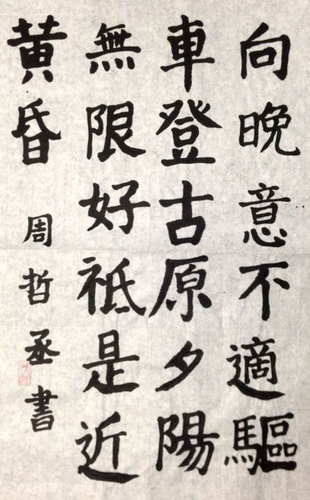 向晚意不適驅
車登古原夕陽
無限好祗是近
黄昏 周哲丞書